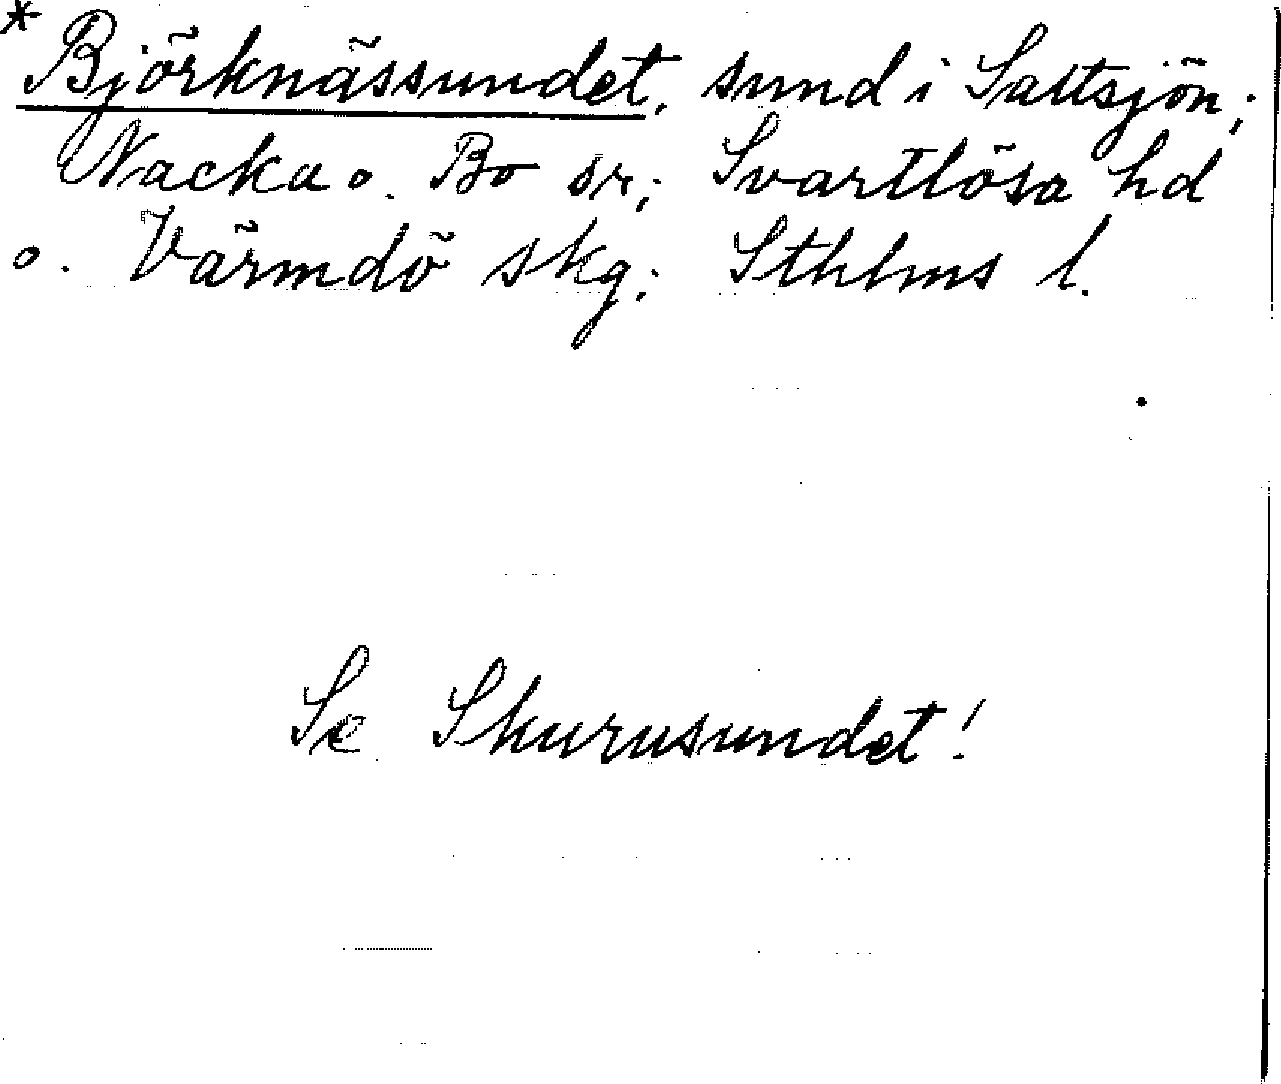 * Björknässundet, sund i Saltsjön;
Nacka o. Bo sr; Svartlösa hd
o. Värmdö skg; Sthlms l.
Se Skurusundet!